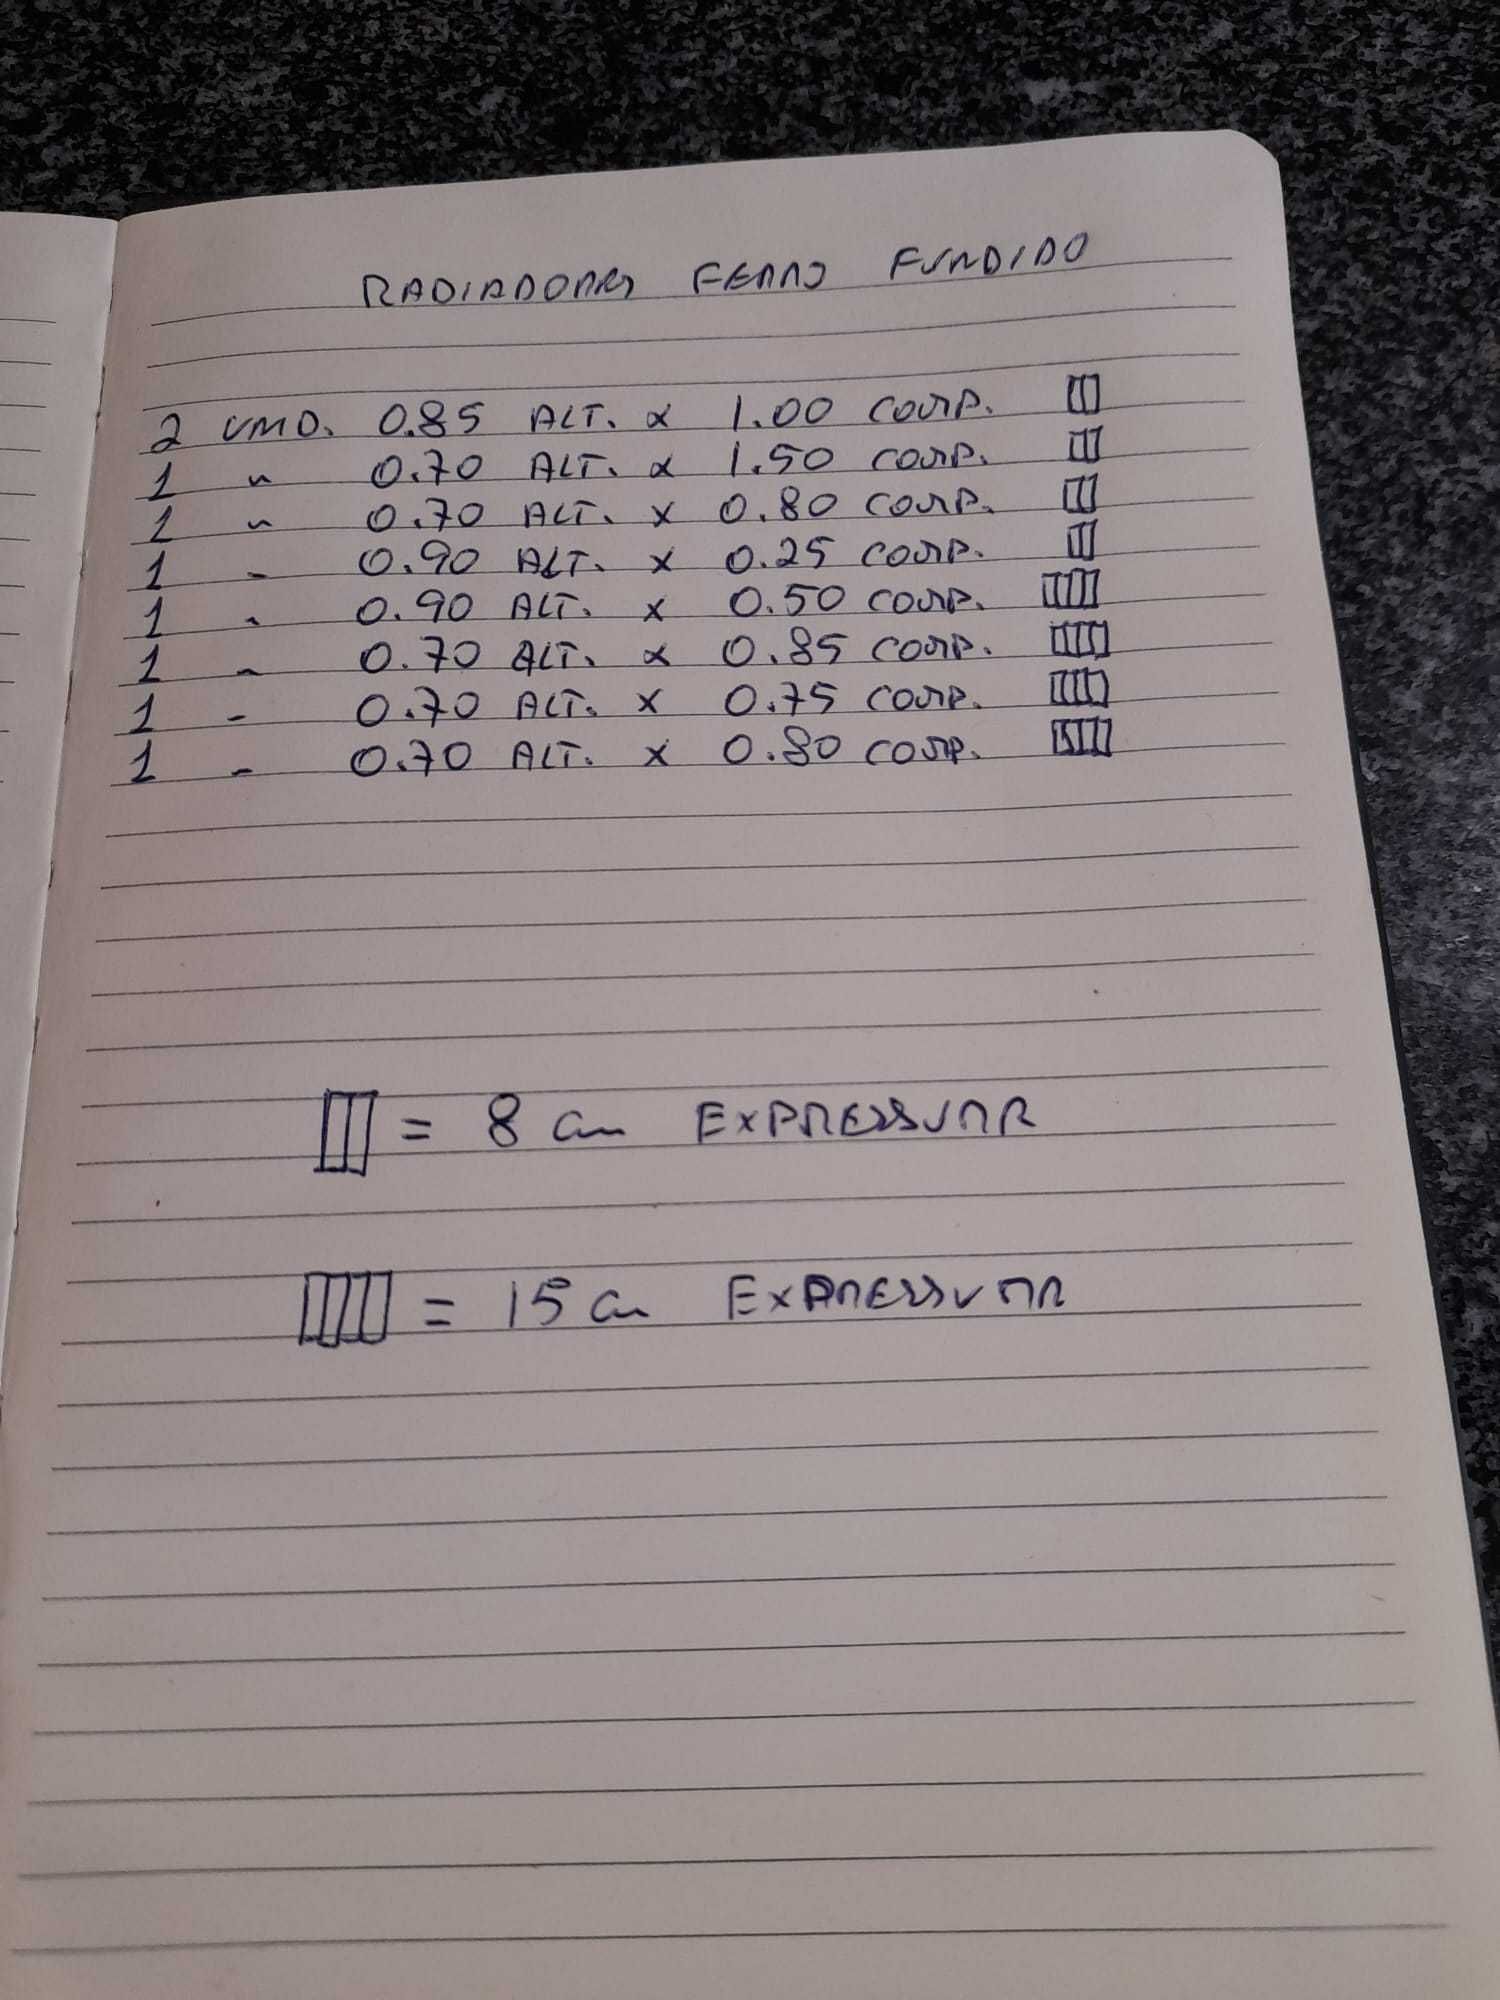 RADIADORES FERRO FUNDIDO
2 UND. 0.85 ALT. x 1.00 COMP.
1 " 0.70 ALT. x 1.50 COMP.
1 " 0.70 ALT. x 0.80 COMP.
1 " 0.90 ALT. x 0.25 COMP.
1 " 0.90 ALT. x 0.50 COMP.
1 " 0.70 ALT. x 0.85 COMP.
1 " 0.70 ALT. x 0.75 COMP.
1 " 0.70 ALT. x 0.80 COMP.
= 8 cm EXPRESSURA
= 15 cm EXPRESSURA